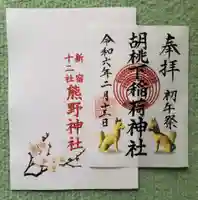 新宿
十二社
熊野神社
奉拝
初午祭
胡桃下稲荷神社
令和六年二月十二日